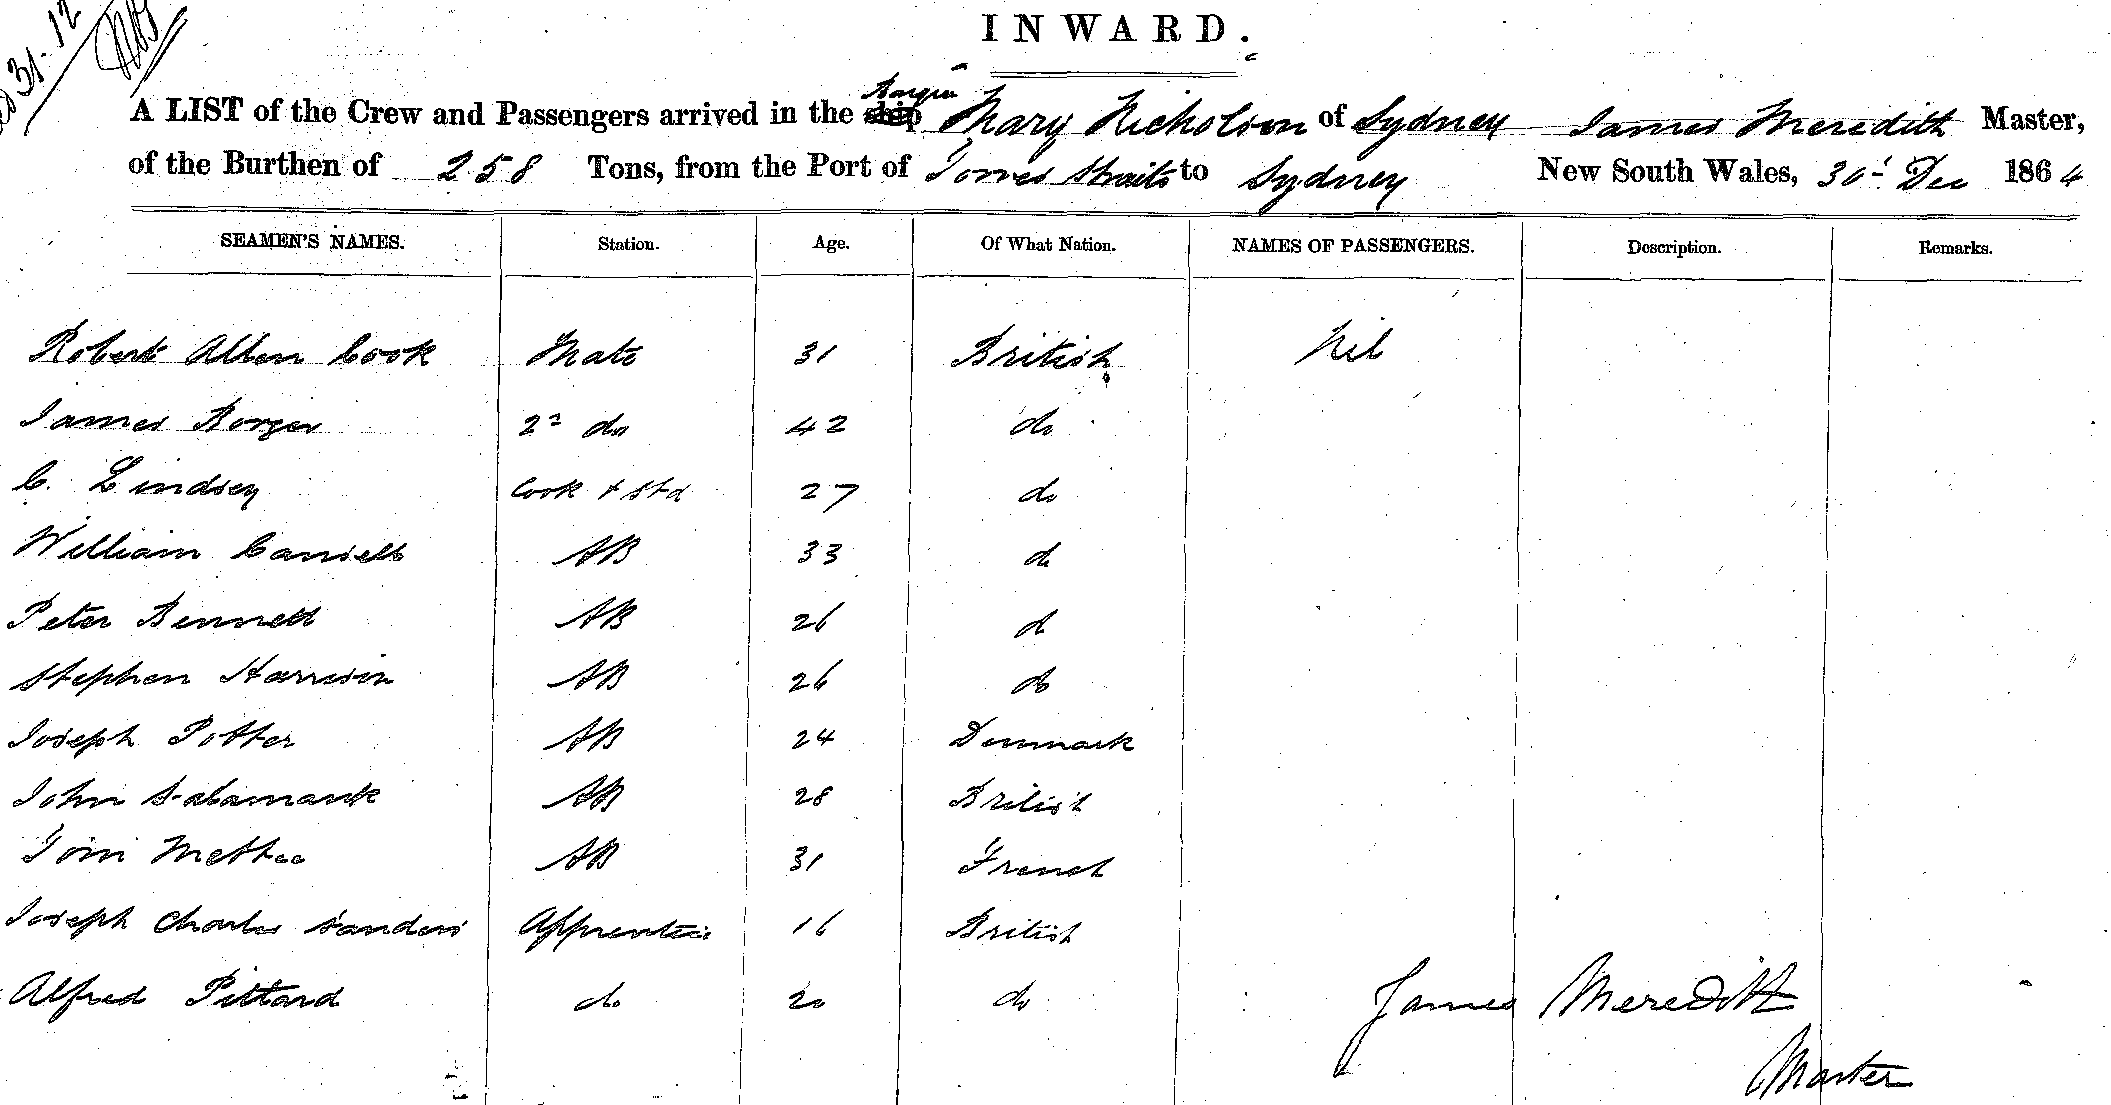 31-12
INWARD.
A LIST of the Crew and Passengers arrived in the ship Barque Mary Nicholson of Sydney James Meredith Master,
of the Burthen of 258 Tons, from the Port of Torres Straits to Sydney New South Wales, 30 Dec 1864
SEAMEN'S NAMES. Station. Age. Of What Nation. NAMES OF PASSENGERS. Description. Remarks.
Robert Allen Cook Mate 31 British Nil
James Borger 2nd do 42 do
C. Lindsey Cook & Std 27 do
William Cansell AB 33 do
Peter Bennett AB 26 do
Stephen Harrison AB 26 do
Joseph Potter AB 24 Denmark
John AB 28 British
Tom AB 31 French
Joseph Charles Sanders Apprentice 16 British
Alfred Pittard do 20 do
James Meredith
Master